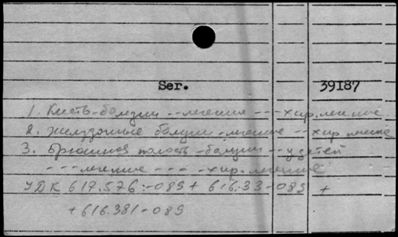 Ser. 39187
1. Кисть-болезни --лечение ---хир. лечение
2. Желудочные болезни -лечение --хир. лечение
3. Брюшная полость-болезни --у детей
---лечение ----хир. лечение
УДК 617.576:-089 + 616.33-089 +
+ 616.381-089